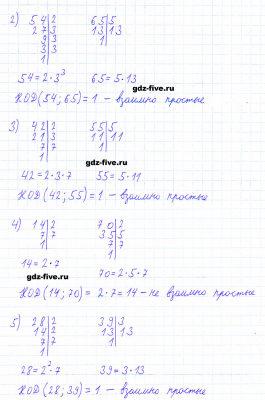 2) 54|2 65|5
27|3 13|13
9|3 1|
3|3
1|
54=2·3³ 65=5·13
gdz-fixer.ru gdz-fixer.ru
НОД(54;65)=1 – взаимно простые
3) 42|2 55|5
21|3 11|11
7|7 1|
1|
gdz-fixer.ru
42=2·3·7 55=5·11
НОД(42;55)=1 – взаимно простые
4) 14|2 70|2
7|7 35|5
1| 7|7
1|
14=2·7
gdz-fixer.ru 70=2·5·7
НОД(14;70)=2·7=14 – не взаимно простые
5) 28|2 39|3
14|2 13|13
7|7 1|
1|
gdz-fixer.ru
28=2²·7 39=3·13
НОД(28;39)=1 – взаимно простые